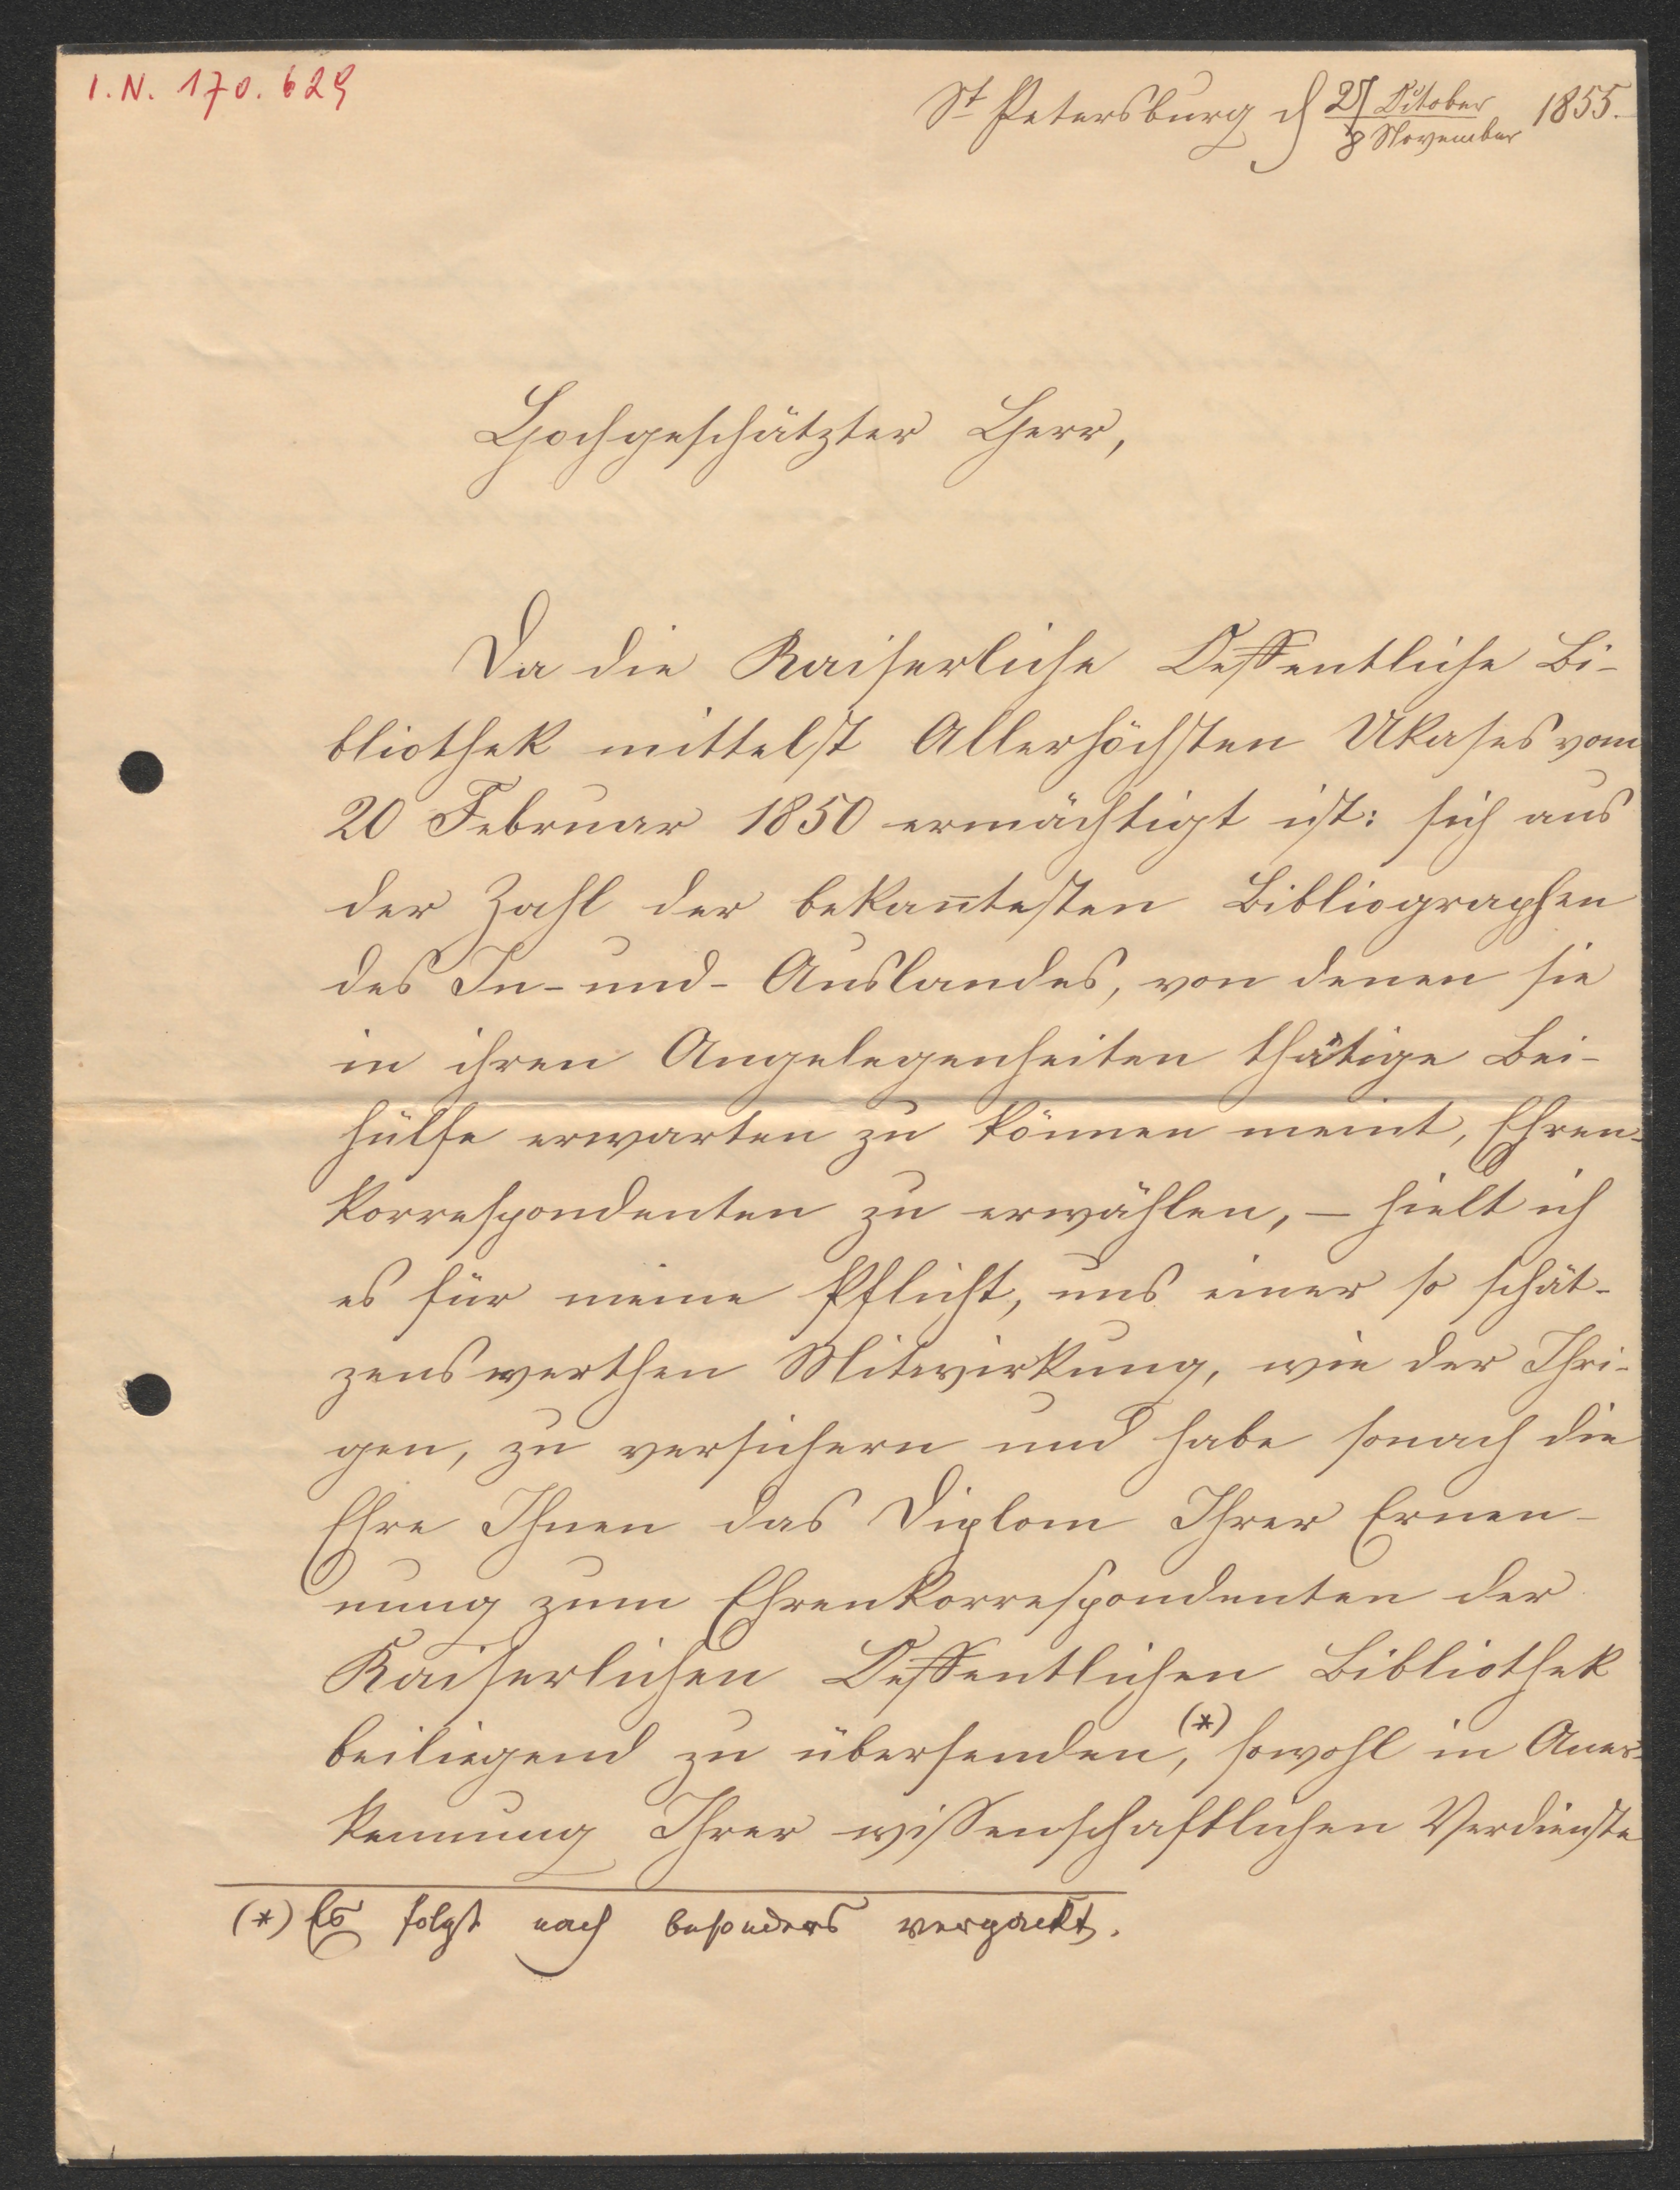 I.N. 170.629
St Petersburg d 27 October / 8 November 1855.
Hochgeschätzter Herr,
Da die Kaiserliche Oeffentliche Bi-
bliothek mittelst Allerhöchsten Ukases vom
20 Februar 1850 ermächtigt ist: sich aus
der Zahl der bekan̄testen Bibliographen
des In- und- Auslandes, von denen sie
in ihren Angelegenheiten thätige Bei-
hülfe erwarten zu können meint, Ehren-
korrespondenten zu erwählen, – hielt ich
es für meine Pflicht, uns einer so schät-
zenswerthen Mitwirkung, wie der Ihri-
gen, zu versichern und habe sonach die
Ehre Ihnen das Diplom Ihrer Ernen-
nung zum Ehrenkorrespondenten der
Kaiserlichen Oeffentlichen Bibliothek
beiliegend zu übersenden,(*) sowohl in Aner-
kennung Ihrer wissenschaftlichen Verdienste
(*) Es folgt noch besonders verpackt.